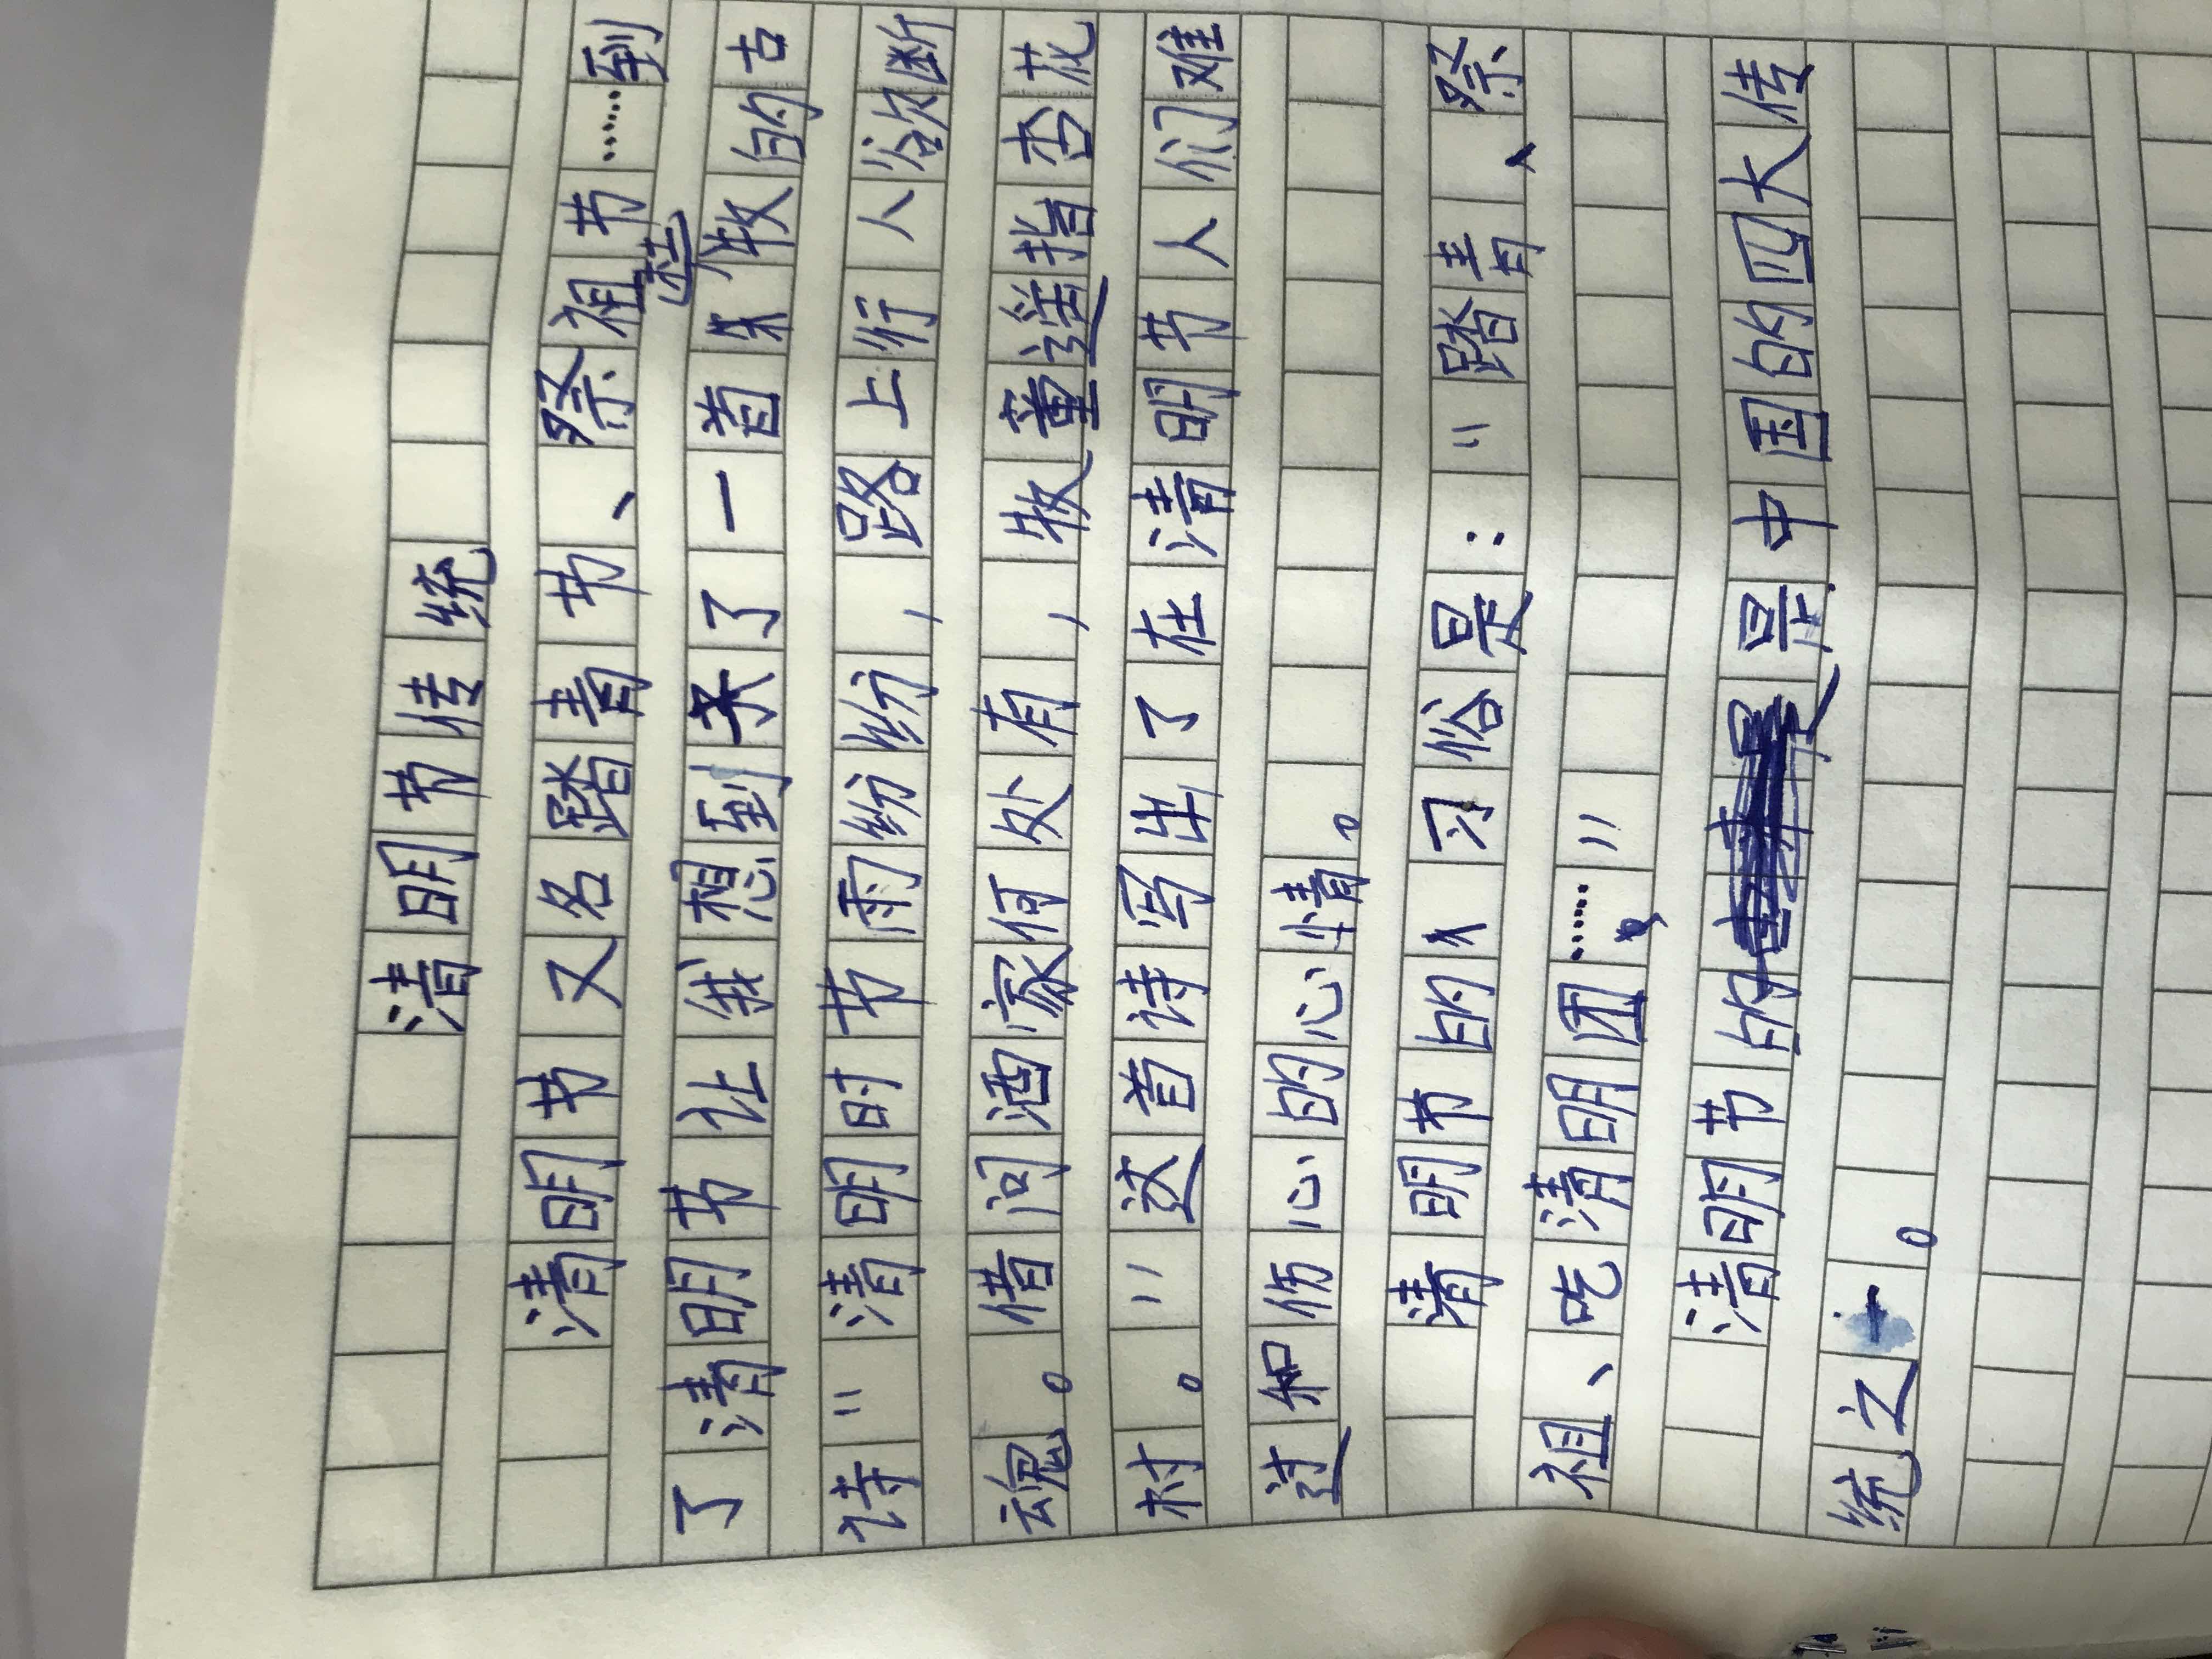 清明节传统
清明节又名踏青节、祭祖节……到
了清明节让我想到来了一首杜牧的古
诗“清明时节雨纷纷，路上行人欲断
魂。借问酒家何处有，牧童遥指杏花
村。”这首诗写出了在清明节人们难
过和伤心的心情。
清明节的习俗是：“踏青、祭
祖、吃清明团……”。
清明节的是中国的四大传
统之一。